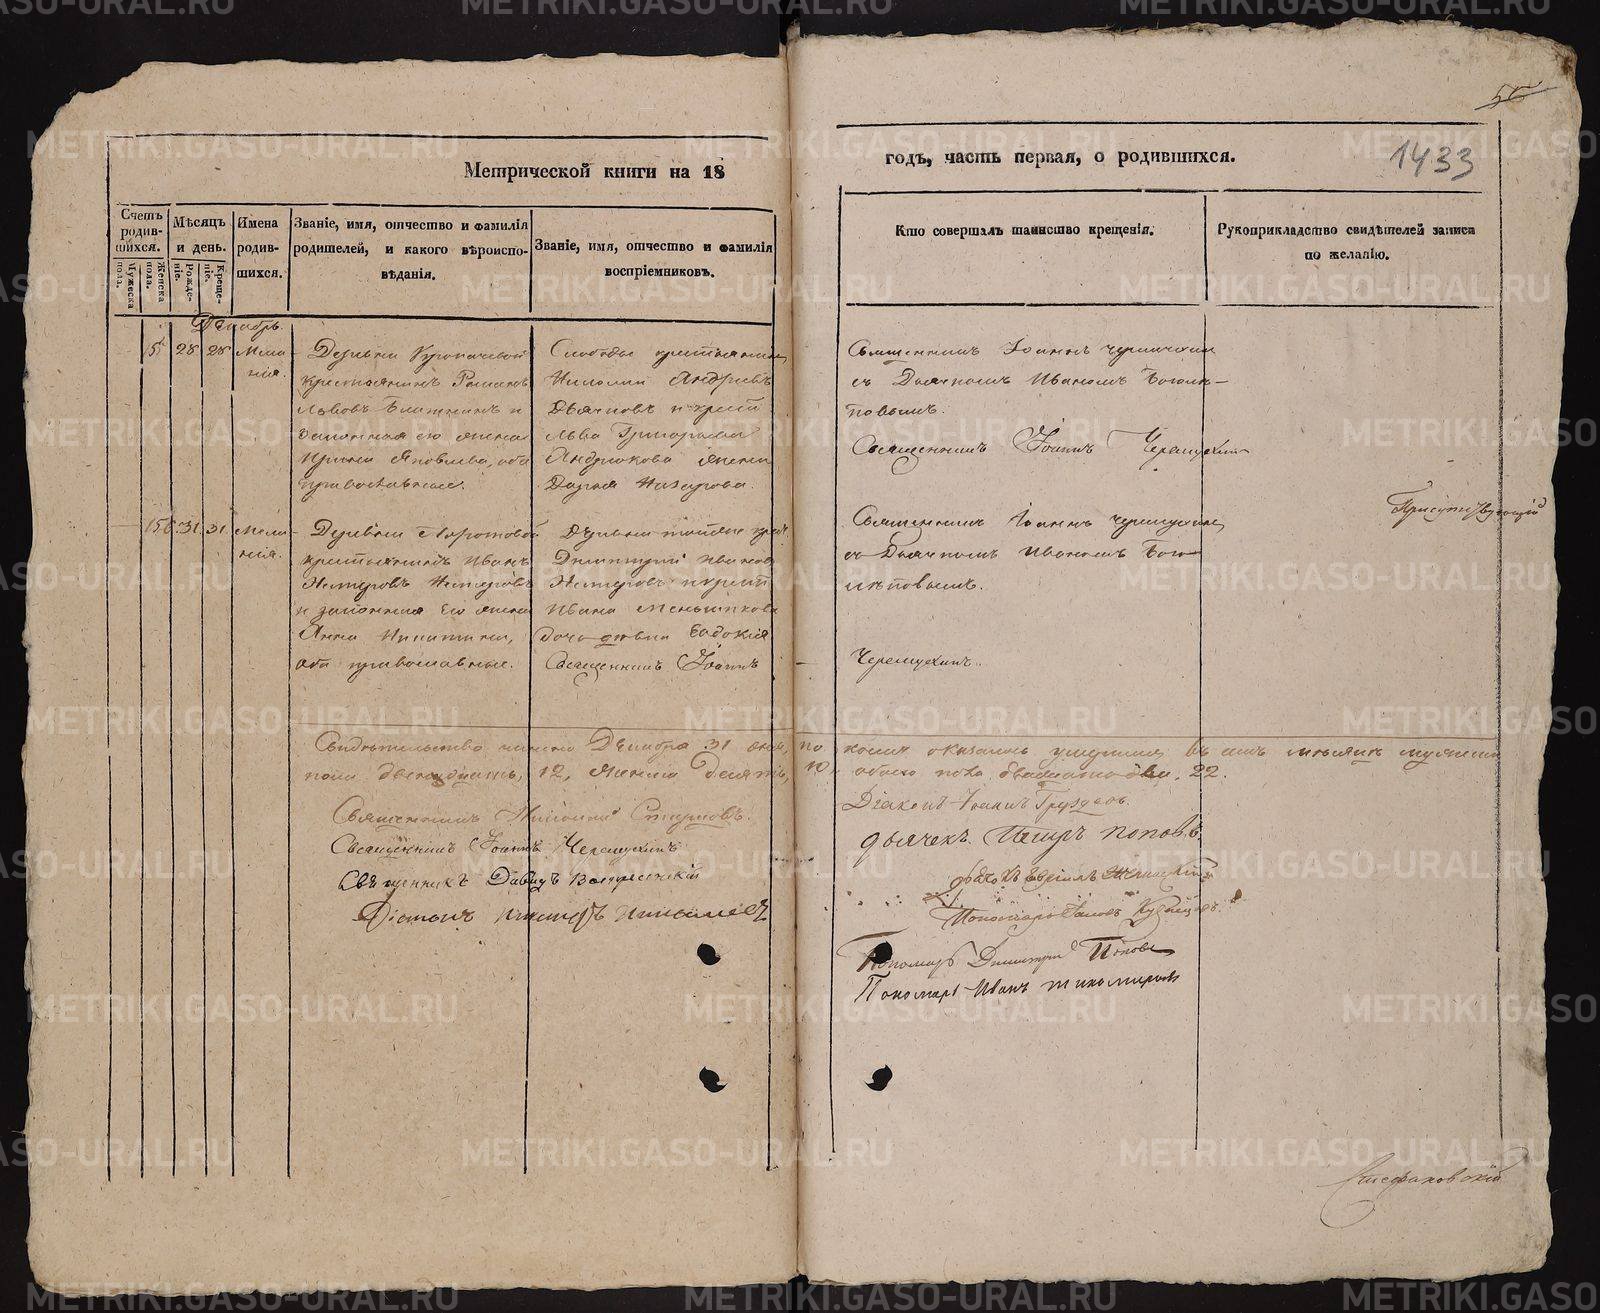 Метрической книги на 18
годъ, часть первая, о родившихся.
1433
Счетъ родившихся.
Мужеска пола.
Женска пола.
Мѣсяцъ и день.
Рожденіе.
Крещеніе.
Имена родившихся.
Званіе, имя, отчество и фамилія
родителей, и какого вѣроиспо-
вѣданія.
Званіе, имя, отчество и фамилія
воспріемниковъ.
Кто совершалъ таинство крещенія.
Рукоприкладство свидѣтелей записи
по желанію.
Декабрь.
28 28 Мела-
нія.
Деревни
крестьянинъ Романъ
Львовъ и
законная его жена
Ирина Яковлева, оба
православные.
Слободы крестьянинъ
Андреевъ
Дьячковъ и крест.
Льва Григорьева
Андрюкова жена
Дарья Назарова.
Священникъ Іоаннъ Черемухинъ
съ Дьячкомъ Иваномъ Боголѣ-
повымъ.
Священникъ Іоаннъ Черемухинъ
156. 31. 31. Мела-
нія.
Деревни
крестьянинъ Иванъ
и законная его жена
Анна Никитина,
оба православные.
Деревни тойже крест.
Димитрій Иванов
и крест.
Ивана Меньшикова
дочь дѣвка Евдокія
Священникъ Іоаннъ
Священникъ Іоаннъ Черемухинъ
съ Дьячкомъ Иваномъ Бого-
лѣповымъ.
Черемухинъ.
Присутствующій
Свидѣтельство чинено Декабря 31 дня, по коему оказалось въ семъ мѣсяцѣ мужеска
пола двенадцать, 12, женска десять, 10, обоего пола двадцать два. 22.
Священникъ
Священникъ Іоаннъ Черемухинъ
Священникъ Давидъ Воскресенскій
Діаконъ
Діаконъ Іоаннъ Груздевъ.
дьячекъ Петръ Поповъ.
Пономарь Кузнецовъ.
Пономарь Димитрій Поповъ
Пономарь Иванъ Тихомировъ
Стефановскій
METRIKI.GASO-URAL.RU